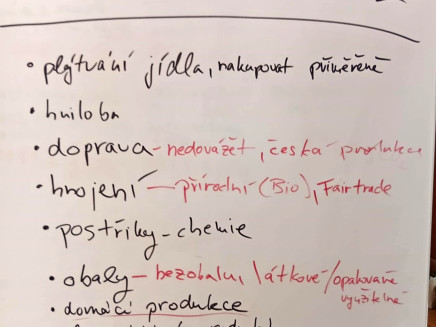 • plýtvání jídla, nakupovat přiměřeně
• hniloba
• doprava – nedovážět, česká produkce
• hnojení – přírodní (Bio), Fairtrade
• postřiky – chemie
• obaly – bezobalu, látkové/opakovaně
využitelné
• domácí produkce